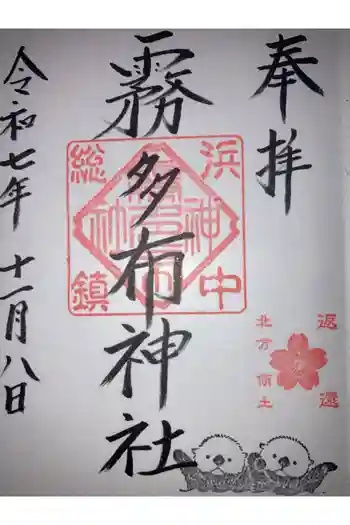 奉拝
霧多布神社
令和七年十一月八日
浜中
総鎮
返還
北方領土